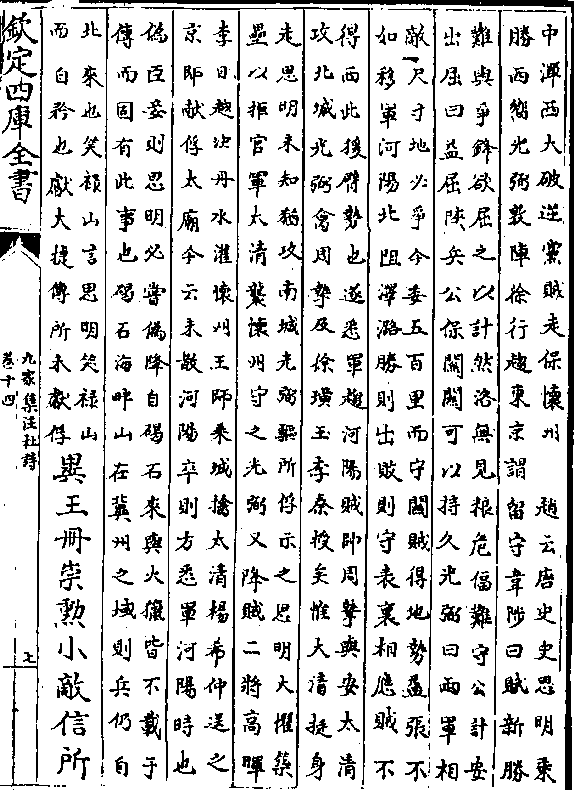 中潬西大破逆黨賊走保懷州 趙云唐史史思明乘
勝西嚮光弼敦陣徐行趨東京謂留守韋陟曰賊新勝
難與爭鋒欲屈之以計然洛無見糧危偪難守公計安
出屈曰益屈陝兵公保關關可以持久光弼曰兩軍相
敵尺寸地必爭今委五百里而守關賊得地勢益張不
如移軍河陽北阻澤潞勝則出敗則守表裏相應賊不
得西此猨臂勢也遂悉軍趨河陽賊帥周摯與安太清
攻北城光弼禽周摯及徐璜玉李秦授矣惟大清挺身
走思明未知猶攻南城光弼驅所俘示之思明大懼築
壘以拒官軍太清襲懷州守之光弼又降賊二將高暉
李日越決丹水灌懷州王師乘城擒太清楊希仲送之
京師獻俘太廟今云未散河陽卒則方悉軍河陽時也
偽臣妾則思明必嘗偽降自碣石來與火獵皆不載于
傳而固有此事也碣石海畔山在冀州之域則兵仍自
北來也笑祿山言思明笑祿山
而自矜也獻大捷傳所未獻俘
異王冊崇勲小敵信所
欽定四庫全書
九家集注杜詩
卷十四
七